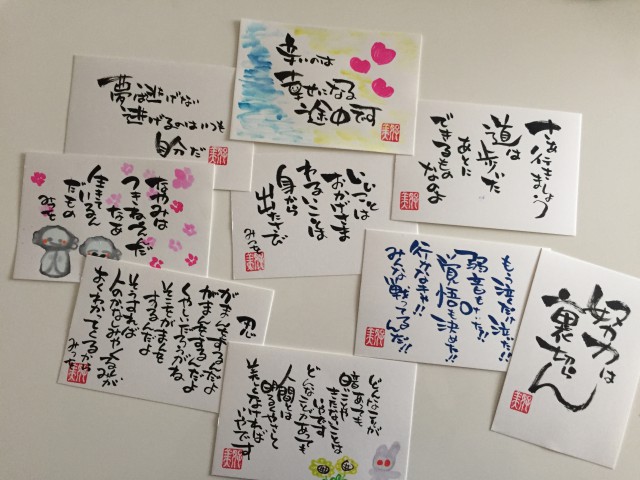 辛いのは
幸せになる
途中です
夢は逃げない
逃げるのはいつも
自分だ
さあ行きましょう
道は
歩いた
あとに
できるもの
なのよ
なやみは
つきねえんだ
なあ
生きているん
だもの
みつを
いいことは
おかげさま
わるいことは
身から
出たさび
みつを
もう泣くだけ泣いた!!
弱音も
覚悟も決めた!!
行かなきゃ!!
みんな戦ってるんだ!!
努力は
裏切らん
忍
がまんをするんだよ
がまんをするんだよ
くやしいだろうがね
そこをがまんを
するんだよ
そうすれば
人のかなしみやくるしみが
よくわかってくるから
みつを
どんなことが
あっても
きたないことは
いやです
どんなことがあっても
人間は
明るくやさしく
美しくなければ
いやです